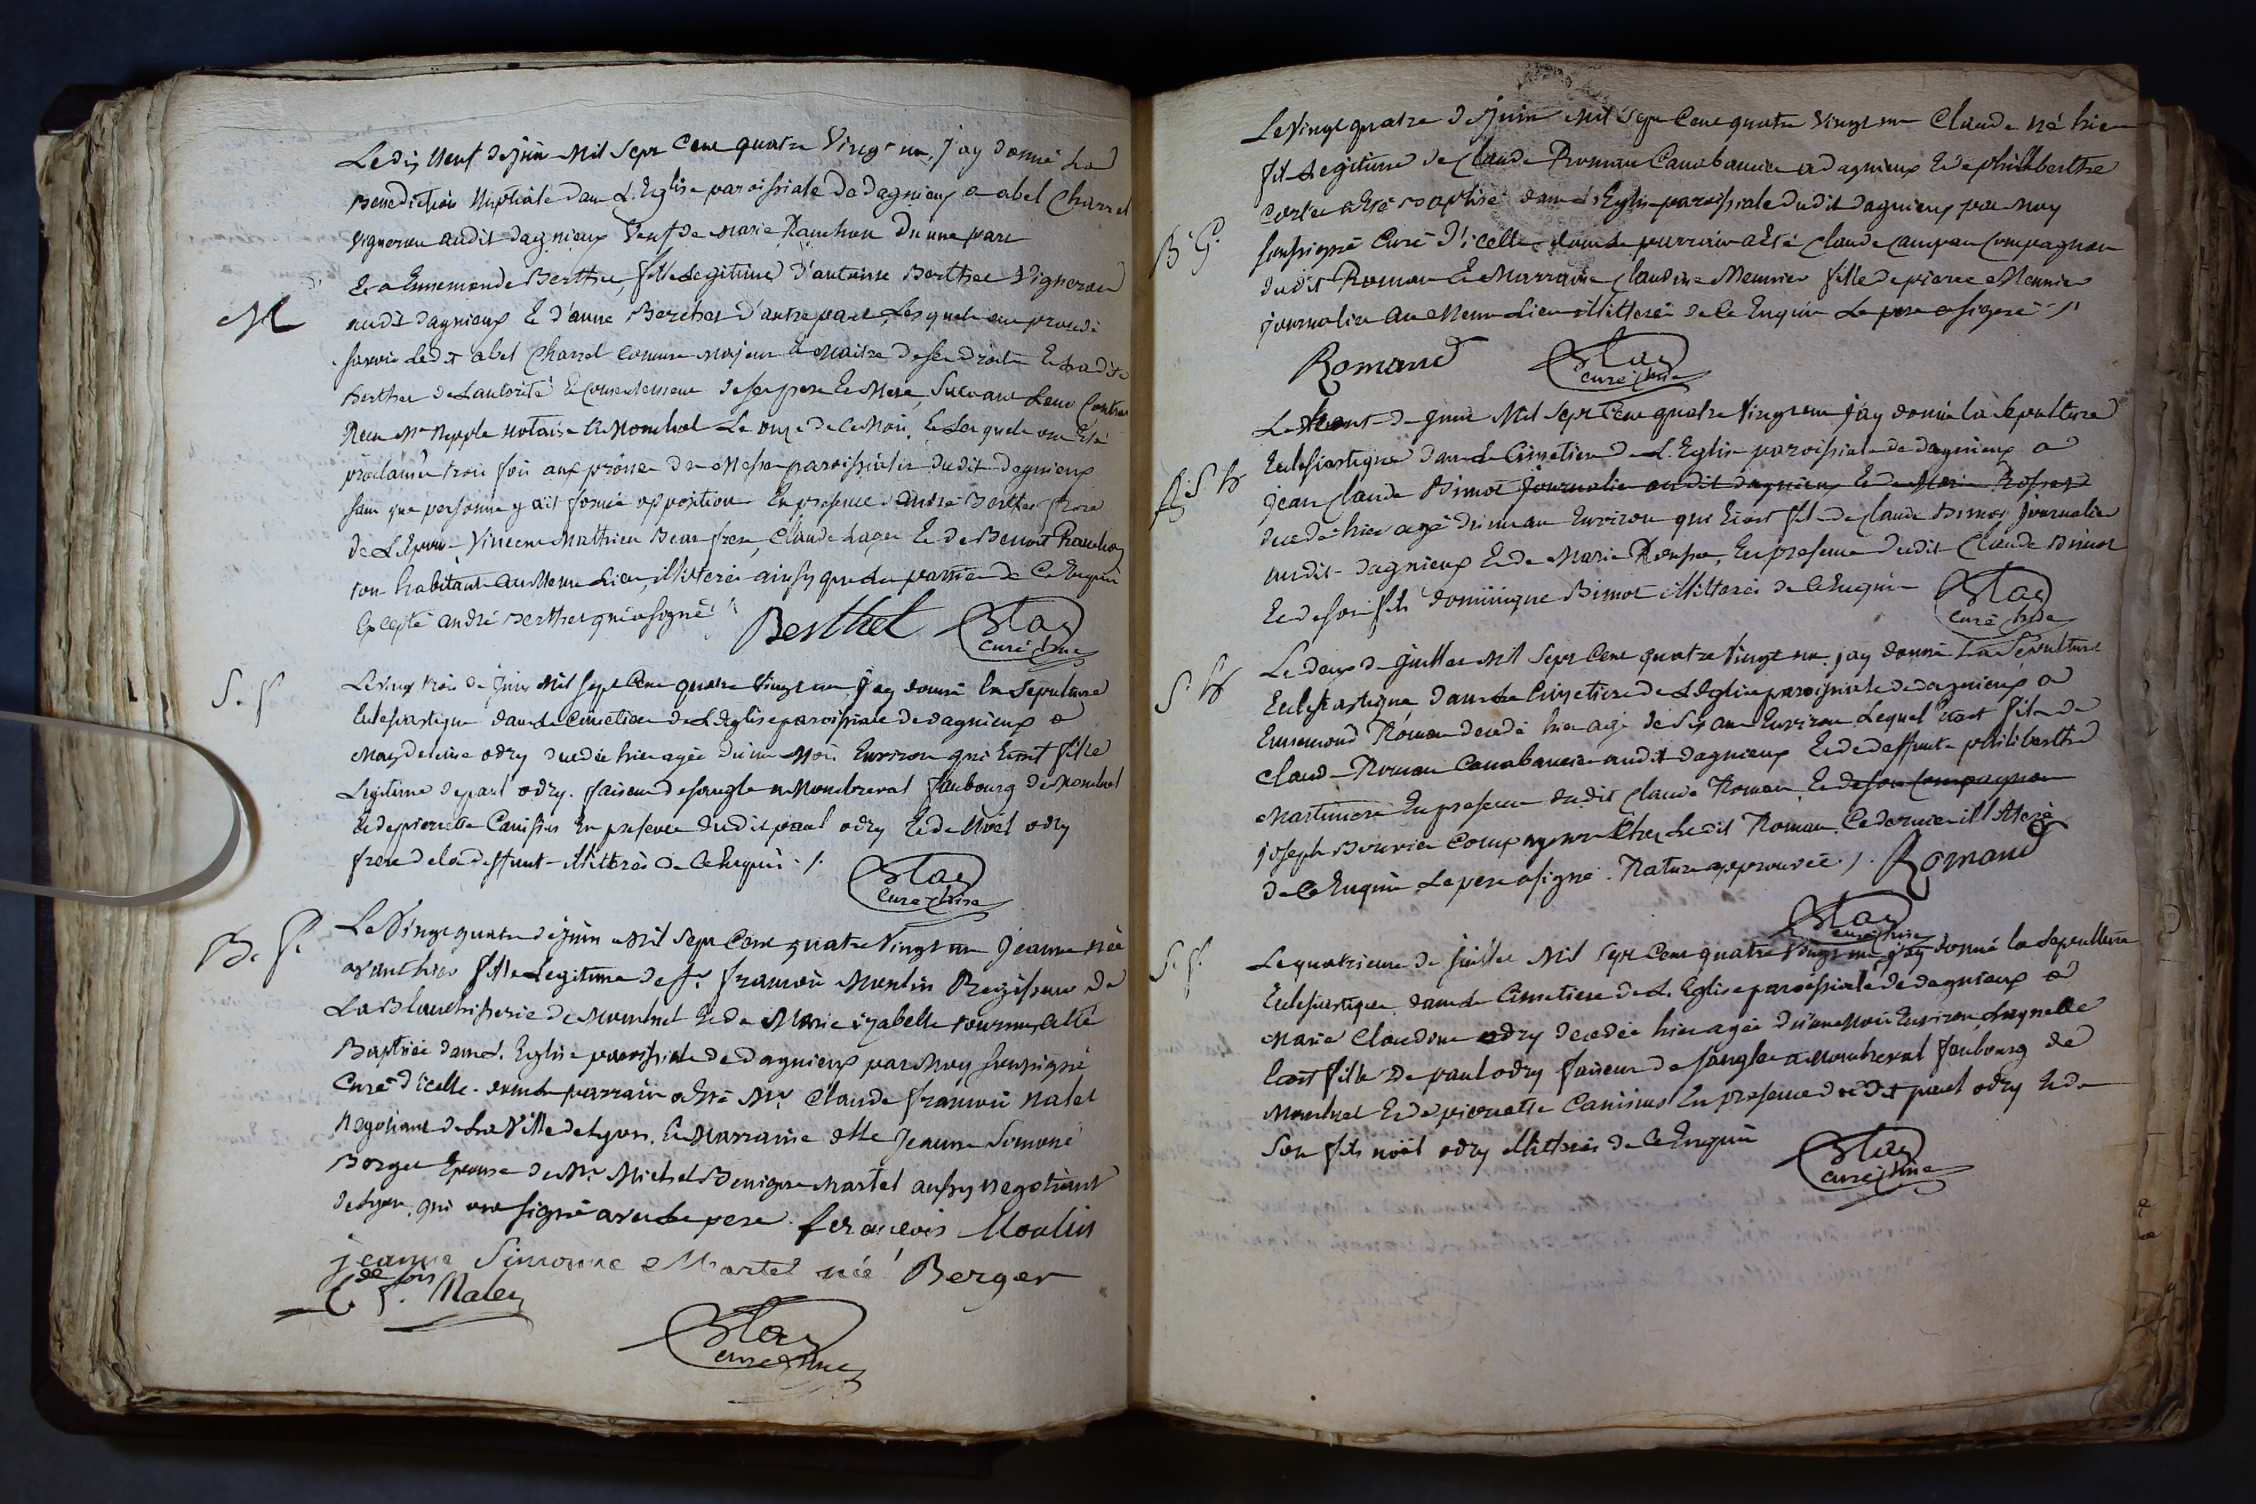 Le dix neuf de juin Mil Sept Cent quatre Vingt un, J'ay donné La
Benediction Nuptiale dans L'Eglise paroissiale de dagnieux a abel Charrel
Vigneron audit dagnieux Veuf de Marie Ranchon D'une part
Et a Ennemonde Berthet, fille Legitime d'antoine Berthet Vigneron
M
audit dagnieux Et d'anne Berthet d'autre part, Lesquels ont procedé
savoir Ledit abel Charrel comme Majeur Et Maitre de ses droits Et Ladite
Berthet de L'autorité Et Consentement de ses pere Et Mere, Suivant Leur Contrat
Recu Me Nepple Notaire A Montluel Le onze de ce Mois, Et Lesquels ont Eté
proclamés trois fois aux prônes de Messes paroissiales dudit dagnieux
sans que personne y ait formé opposition En presence d'andré Berthet frere
de L'Epouse Vincent Mathieu Beau frere, Claude Lager Et de Benoit Ranchon
tous habitants au Meme Lieu, illiterés ainsy que Les parties de Ce Enquis
Excepté andré Berthet qui a signé
Berthet
Blay
curé
S. f
Le Vingt trois de Juin Mil Sept Cent quatre Vingt un J'ay donné La Sepulture
Eclesiastique dans Le Cimetiere de L'Eglise paroissiale de dagnieux a
Magdeleine odry decedée hier agée d'un Mois Environ qui Etoit fille
Legitime de paul odry faiseur de sangle a Montreval faubourg de Montluel
Et de pierrette Canisius En presence dudit paul odry Et de Noël odry
frere de La deffunte illiterés de Ce Enquis
Blay
curé
B. f.
Le Vingt quatre de juin Mil Sept Cent quatre Vingt un Jeanne née
avant hier fille Legitime de Sr. francois Moulin Regisseur de
La Blanchisserie de Montluel Et de Marie izabelle a Eté
Baptisée dans L'Eglise paroissiale de dagnieux par Moy soussigné
Curé d'icelle dont Le parrain a Eté Mr. Claude francois Malet
Negotiant de La Ville de Lyon, Et Marraine dlle Jeanne Simone
Berger Epouse de Mr Michel Benigne Martel aussy negotiant
de Lyon, qui ont signé avec Le pere. francois Moulin
jeanne Simonne Martel née Berger
Cde fois Malet
Blay
curé
Le Vingt quatre de Juin Mil Sept Cent quatre Vingt un Claude né hier
fils Legitime de Claude Roman Canabanier a dagnieux Et de philliberthe
B. G.
a Eté Baptisé dans L'Eglise paroissiale dudit dagnieux par Moy
soussigné Curé d'icelle dont Le parrain a Eté Claude Campan Compagnon
dudit Roman Et Marraine Claudine Meunier fille de pierre Meunier
journalier au Meme Lieu illiterés de Ce Enquis Le pere a signé
Romand
Blay
curé
Le trente de Juin Mil Sept Cent quatre Vingt un j'ay donné la Sepulture
Eclesiastique dans Le Cimetiere de L'Eglise paroissiale de dagnieux a
S. G
jean Claude Bimot journalier audit dagnieux Et de Marie
decedé hier agé d'un an Environ qui Etoit fils de Claude Bimot journalier
audit dagnieux Et de Marie En presence dudit Claude Bimot
Et de son fils dominique Bimot illiterés de Ce Enquis
Blay
curé
S. G
Le deux de Juillet Mil Sept Cent quatre Vingt un, j'ay donné La Sepulture
Eclesiastique dans Le Cimetiere de L'Eglise paroissiale de dagnieux a
Ennemond Roman decedé hier agé de Six ans Environ Lequel Etoit fils de
Claude Roman Canabanier audit dagnieux Et de deffunte philiberthe
Martiniere En presence dudit Claude Roman, Et de son Compagnon
joseph Bouvier Compagnon Chez Ledit Roman. Ce dernier illiteré
de Ce Enquis Le pere a signé. Rature approuvée. Romand
Blay
curé
S. f.
Le quatrieme de Juillet Mil Sept Cent quatre Vingt un, j'ay donné la Sepulture
Eclesiastique dans Le Cimetiere de L'Eglise paroissiale de dagnieux a
Marie Claudine odry decedée hier agée d'un Mois Environ, Laquelle
Etoit fille de paul odry faiseur de sangle a Montreval faubourg de
Montluel Et de pierrette Canisius En presence dudit paul odry Et de
Son fils noël odry illiterés de Ce Enquis
Blay
curé